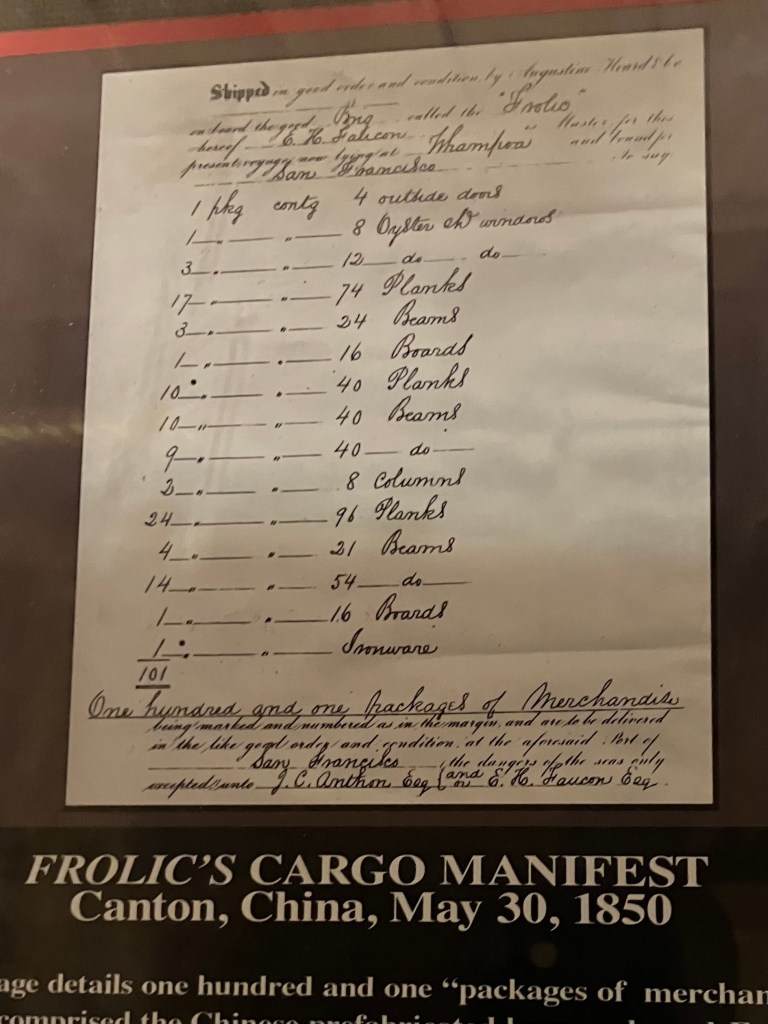 Shipped in good order and condition, by Augustine Heard & Co
on board the good Brig called the "Frolic"
hereof E. H. Faucon Master for this
present voyage now lying at Whampoa and bound for
San Francisco To say
1 pkg contg 4 outside doors
1 — " — " — 8 Oyster sh windows
3 — " — " — 12 — do — do —
17 — " — " — 74 Planks
3 — " — " — 24 Beams
1 — " — " — 16 Boards
10 — " — " — 40 Planks
10 — " — " — 40 Beams
9 — " — " — 40 — do —
2 — " — " — 8 Columns
24 — " — " — 96 Planks
4 — " — " — 21 Beams
14 — " — " — 54 — do —
1 — " — " — 16 Boards
1 — " — " — Ironware
101
One hundred and one packages of Merchandise
being marked and numbered as in the margin, and are to be delivered
in the like good order and condition, at the aforesaid Port of
San Francisco (the dangers of the seas only
excepted) unto J. C. Anthon Esq { and or E. H. Faucon Esq.
FROLIC'S CARGO MANIFEST
Canton, China, May 30, 1850
age details one hundred and one "packages of merchan
comprised the Chinese prefabricated